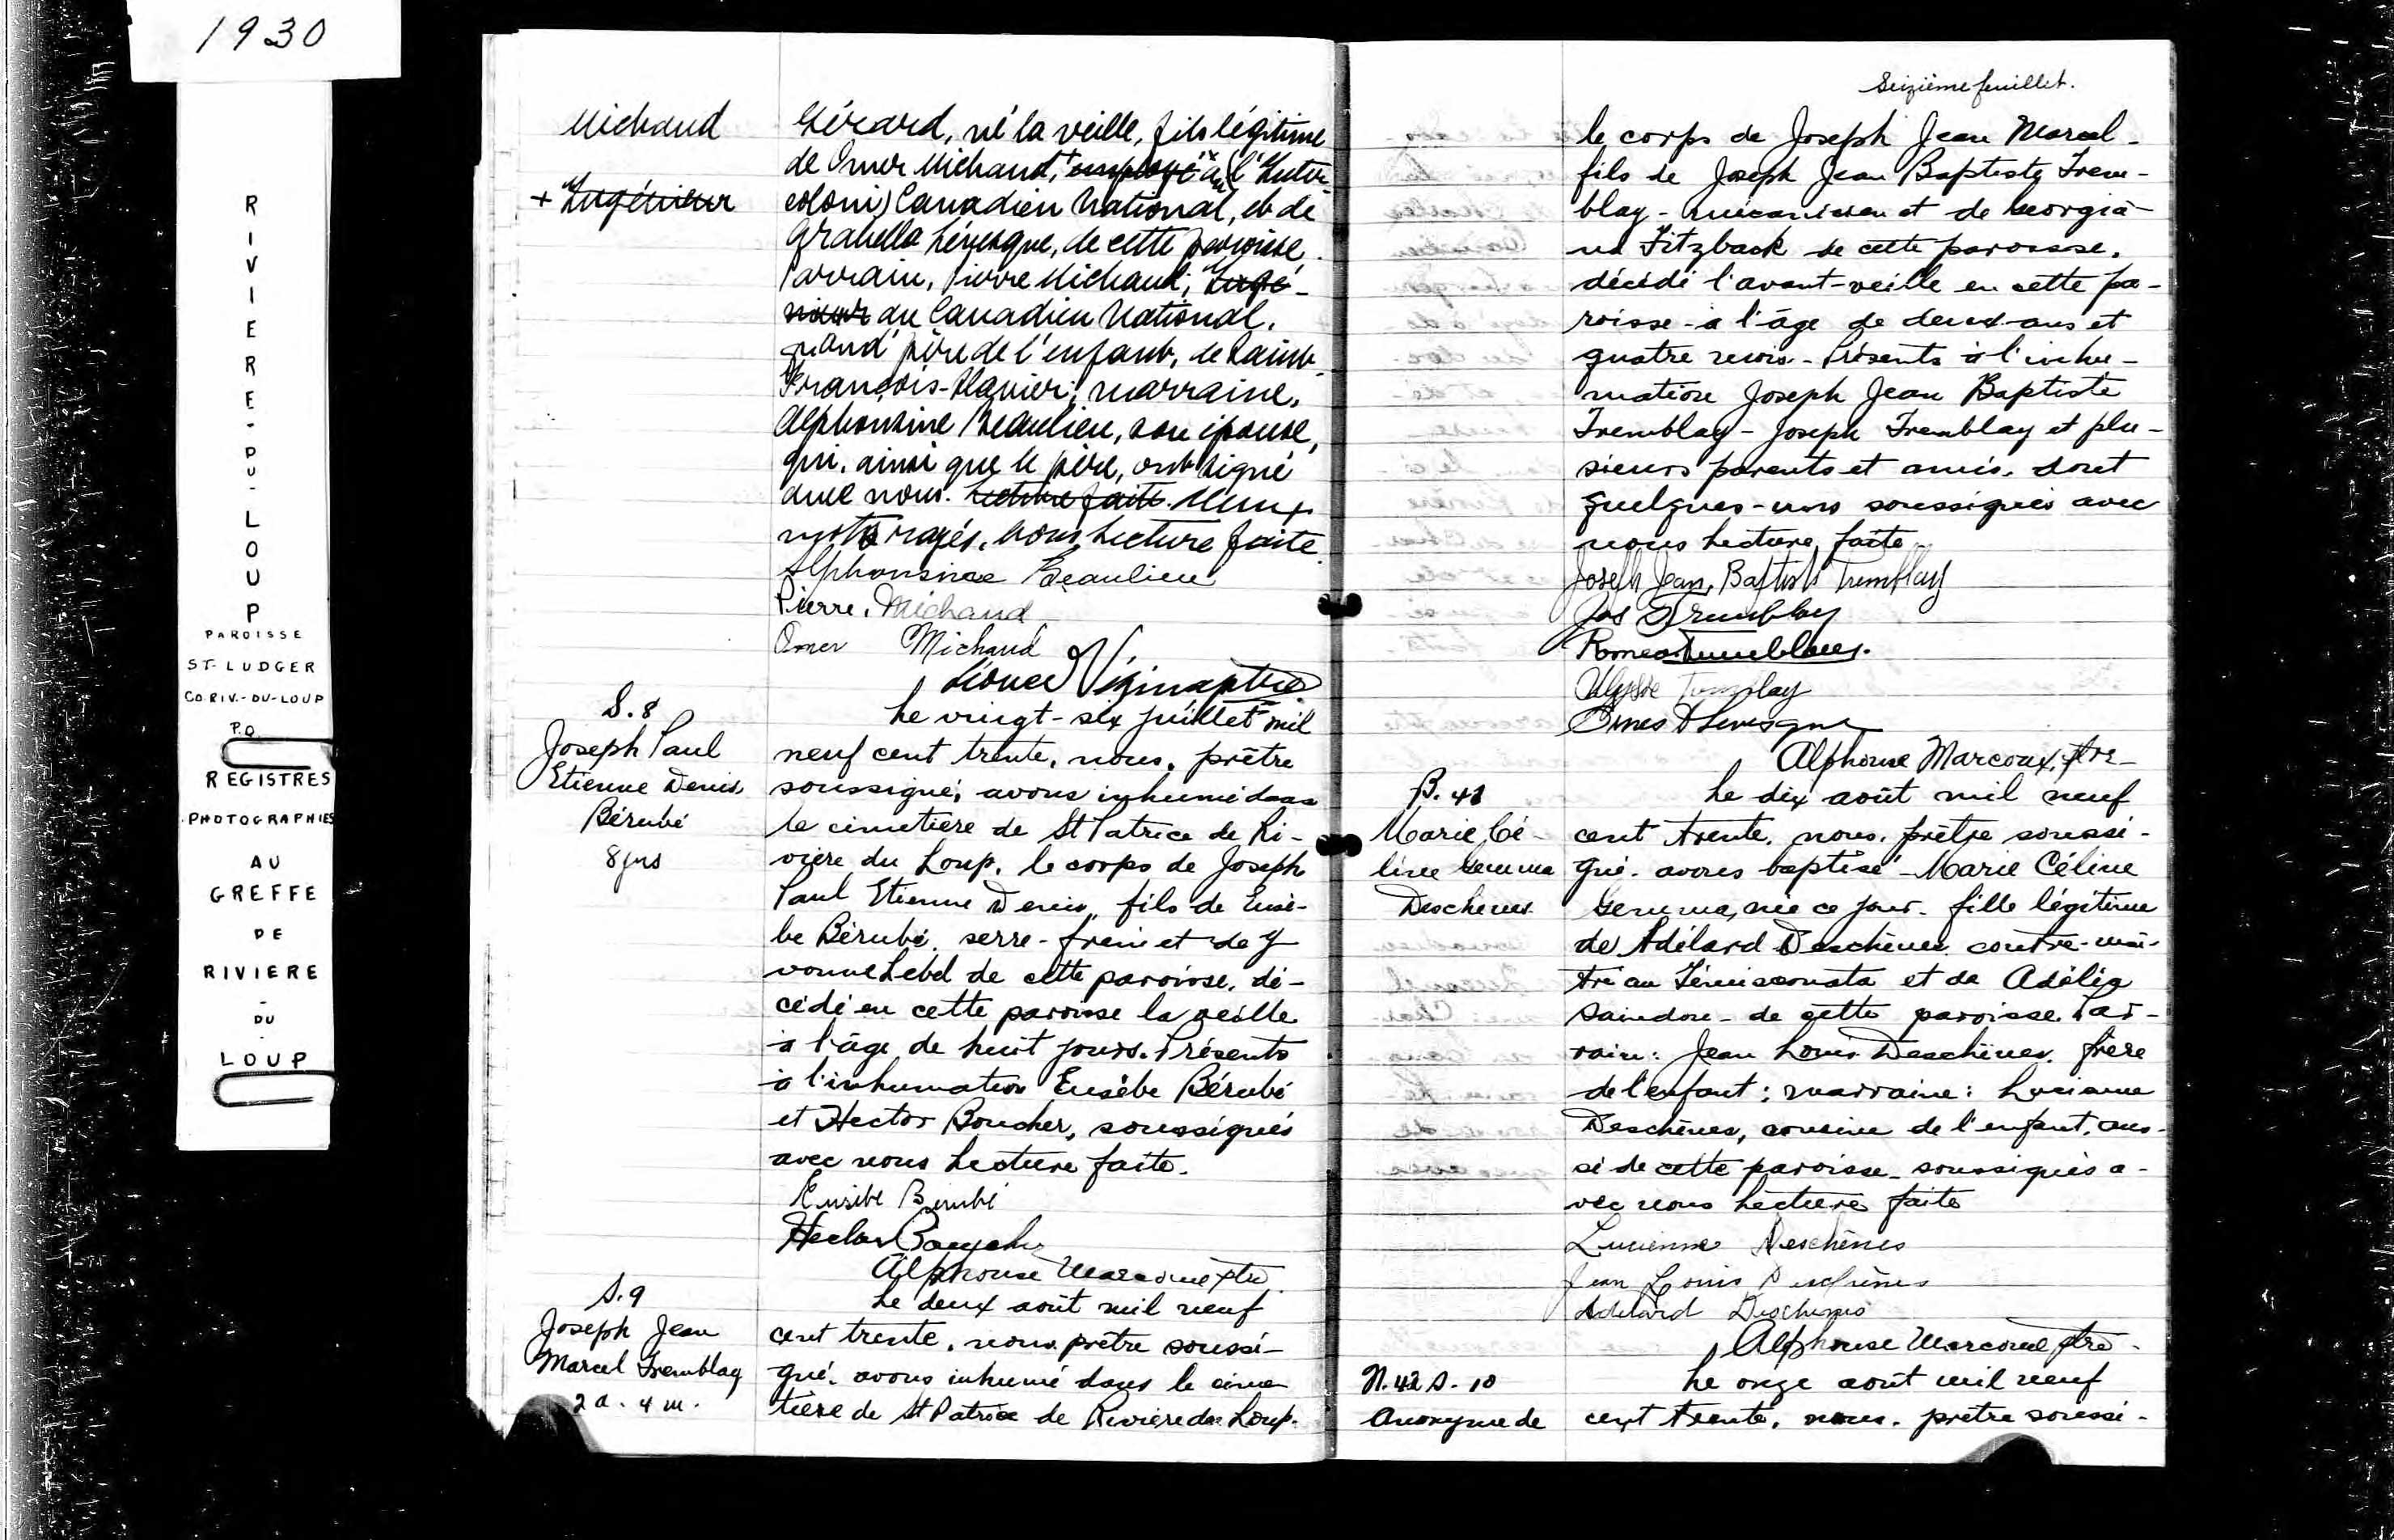 1930
RIVIERE-DU-LOUP
PAROISSE
ST-LUDGER
CO. RIV.-DU-LOUP
P.Q.
REGISTRES
PHOTOGRAPHIES
AU
GREFFE
DE
RIVIERE
-
DU
-
LOUP
Michaud
+ Ingénieur
Gérard, né la veille, fils légitime
de Omer Michaud, + employé à l'Inter-
coloni) Canadien National, et de
Grabella Lévesque, de cette paroisse.
Parrain, Pierre Michaud, Ingé-
nieur au Canadien National,
grand père de l'enfant, de Saint-
François-Xavier; marraine,
Alphonsine Beaulieu, son épouse,
qui, ainsi que le père, ont signé
avec nous. Lecture faite.
mots rayés, nous. Lecture faite.
Alphonsine Beaulieu
Pierre. Michaud
Omer Michaud
S. 8
Joseph Paul
Etienne Denis
Bérubé
8 jrs
Le vingt-six juillet mil
neuf cent trente, nous, prêtre
soussigné, avons inhumé dans
le cimetière de St Patrice de Ri-
vière du Loup, le corps de Joseph
Paul Etienne Denis, fils de Eusè-
be Bérubé, serre-frein et de Y
vonne Lebel de cette paroisse, dé-
cédé en cette paroisse la veille
à l'âge de huit jours. Présents
à l'inhumation Eusèbe Bérubé
et Hector Boucher, soussignés
avec nous lecture faite.
Eusèbe Bérubé
Hector Boucher
Alphonse Marcoux ptre
S. 9
Joseph Jean
Marcel Tremblay
2 a. 4 m.
Le deux août mil neuf
cent trente, nous prêtre soussi-
gné, avons inhumé dans le cime
tière de St Patrice de Rivière du Loup-
Seizième feuillet.
le corps de Joseph Jean Marcel -
fils de Joseph Jean Baptiste Trem-
blay - mécanicien et de Georgia-
na Fitzback de cette paroisse,
décédé l'avant-veille en cette pa-
roisse - à l'âge de deux ans et
quatre mois. - Présents à l'inhu-
mation Joseph Jean Baptiste
Tremblay - Joseph Tremblay et plu-
sieurs parents et amis, dont
quelques-uns soussignés avec
nous lecture faite -
Joseph Jean Baptiste Tremblay
Jos Tremblay
Romeo Tremblay.
Ulysse Tremblay
Levesque
Alphonse Marcoux, ptre -
B. 41
Marie Cé-
line Gemma
Deschenes
Le dix août mil neuf
cent trente, nous, prêtre soussi-
gné - avons baptisé - Marie Céline
Gemma, née ce jour - fille légitime
de Adélard Deschènes contre-maî-
tre au Témiscouata et de Adélia
Saindon - de cette paroisse. Par-
rain: Jean Louis Deschênes, frère
de l'enfant; marraine: Lucienne
Deschênes, cousine de l'enfant, aus-
si de cette paroisse - soussignés a-
vec nous lecture faite
Lucienne Deschênes
Jean Louis Deschênes
Adelard Deschenes
Alphonse Marcoux ptre -
N. 42 S. 10
Anonyme de
Le onze août mil neuf
cent trente, nous, prêtre soussi-